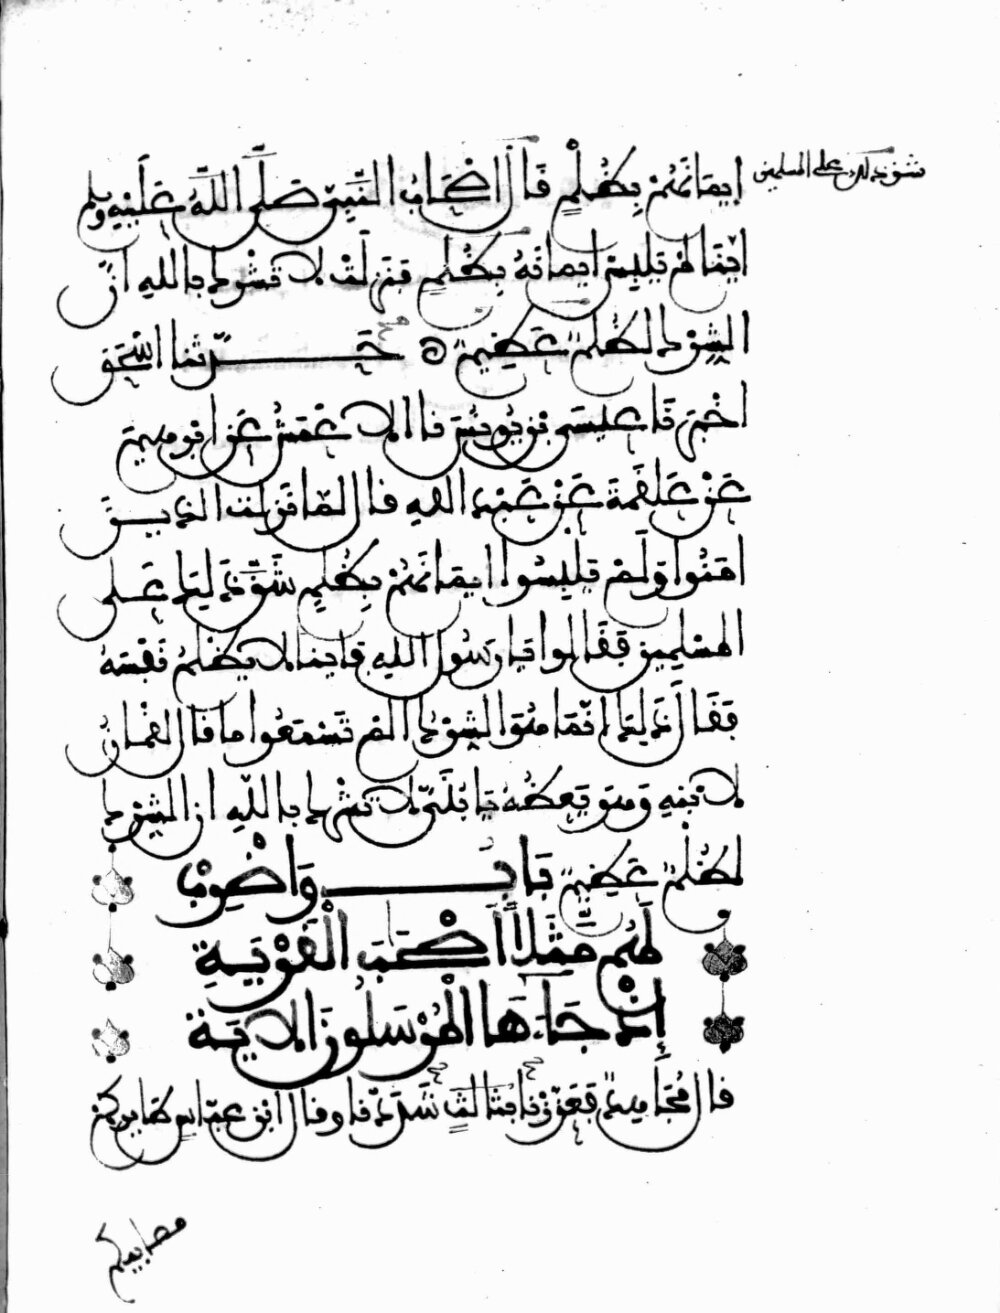 شق ذلك على المسلمين
إيمانهم بظلم قال أصحاب النبي صلى الله عليه وسلم
أينا لم يلبس إيمانه بظلم فنزلت لا تشرك بالله إن
الشرك لظلم عظيم ه حدثنا إسحق
أخبرنا عيسى بن يونس نا الأعمش عن إبرهيم
عن علقمة عن عبد الله قال لما نزلت الذين
امنوا ولم يلبسوا إيمانهم بظلم شق ذلك على
المسلمين فقالوا يا رسول الله فأينا لا يظلم نفسه
فقال ليس ذلك إنما هو الشرك ألم تسمعوا ما قال لقمان
لابنه وهو يعظه يا بني لا تشرك بالله إن الشرك
لظلم عظيم باب واضرب
لهم مثلا أصحب القرية
إذ جاءها المرسلون الآية
قال مجاهد فعززنا بثالث شددنا وقال ابن عباس طايركم
مصايبكم